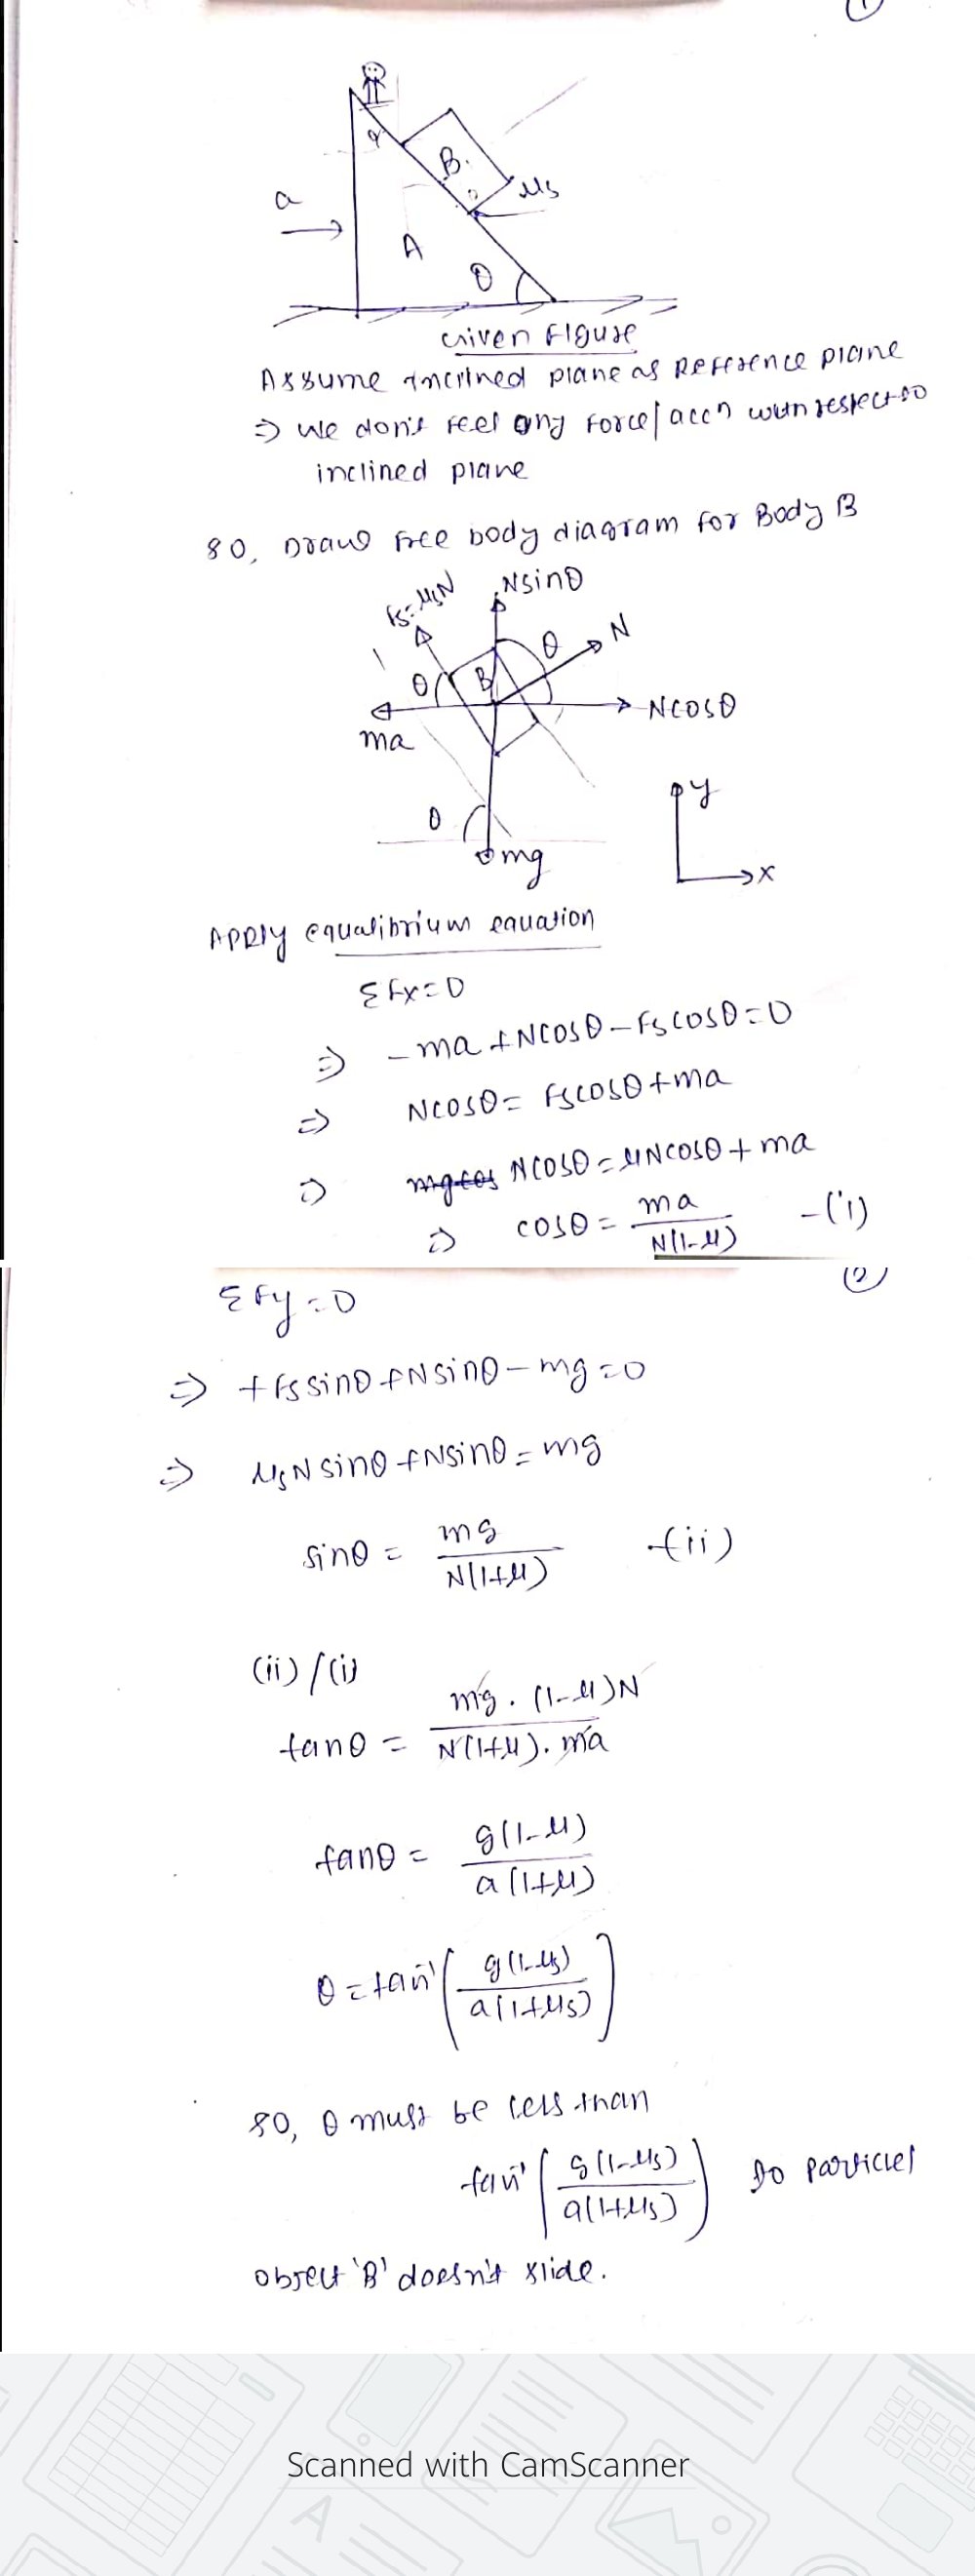 (1)
B.
μs
a
A
θ
Given Figure
Assume inclined plane as Reference plane
⇒ We don't feel any force/accn with respect to
inclined plane
So, Draw free body diagram for Body B
fs=μsN
Nsinθ
N
θ
θ
B
Ncosθ
ma
y
θ
mg
x
Apply equalibrium equation
ΣFx=0
⇒ -ma+Ncosθ-fscosθ=0
⇒ Ncosθ= fscosθ+ma
⇒ Ncosθ=μNcosθ+ma
⇒ cosθ= ma/N(1-μ) -(i)
(2)
ΣFy=0
⇒ +fssinθ+Nsinθ-mg=0
⇒ μsNsinθ+Nsinθ=mg
sinθ= mg/N(1+μ) -(ii)
(ii)/(i)
tanθ= mg.(1-μ)N/N(1+μ).ma
tanθ= g(1-μ)/a(1+μ)
θ=tan⁻¹(g(1-μs)/a(1+μs))
So, θ must be less than
tan⁻¹(g(1-μs)/a(1+μs)) so particles
object 'B' doesn't slide.
Scanned with CamScanner